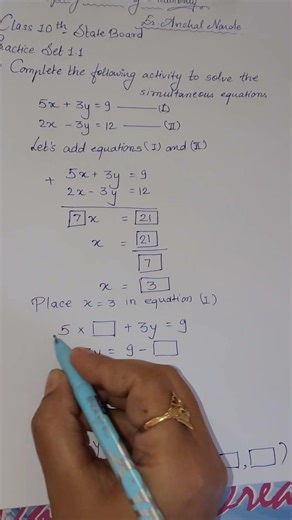 Dr. Anchal Narde
Class 10th State Board
Practice Set 1.1
Complete the following activity to solve the
simultaneous equations
5x + 3y = 9 —— (I)
2x - 3y = 12 —— (II)
Let's add equations (I) and (II)
+ 5x + 3y = 9
2x - 3y = 12
7 x = 21
x = 21
7
x = 3
Place x = 3 in equation (I)
5 × □ + 3y = 9
y = 9 - □
□, □)